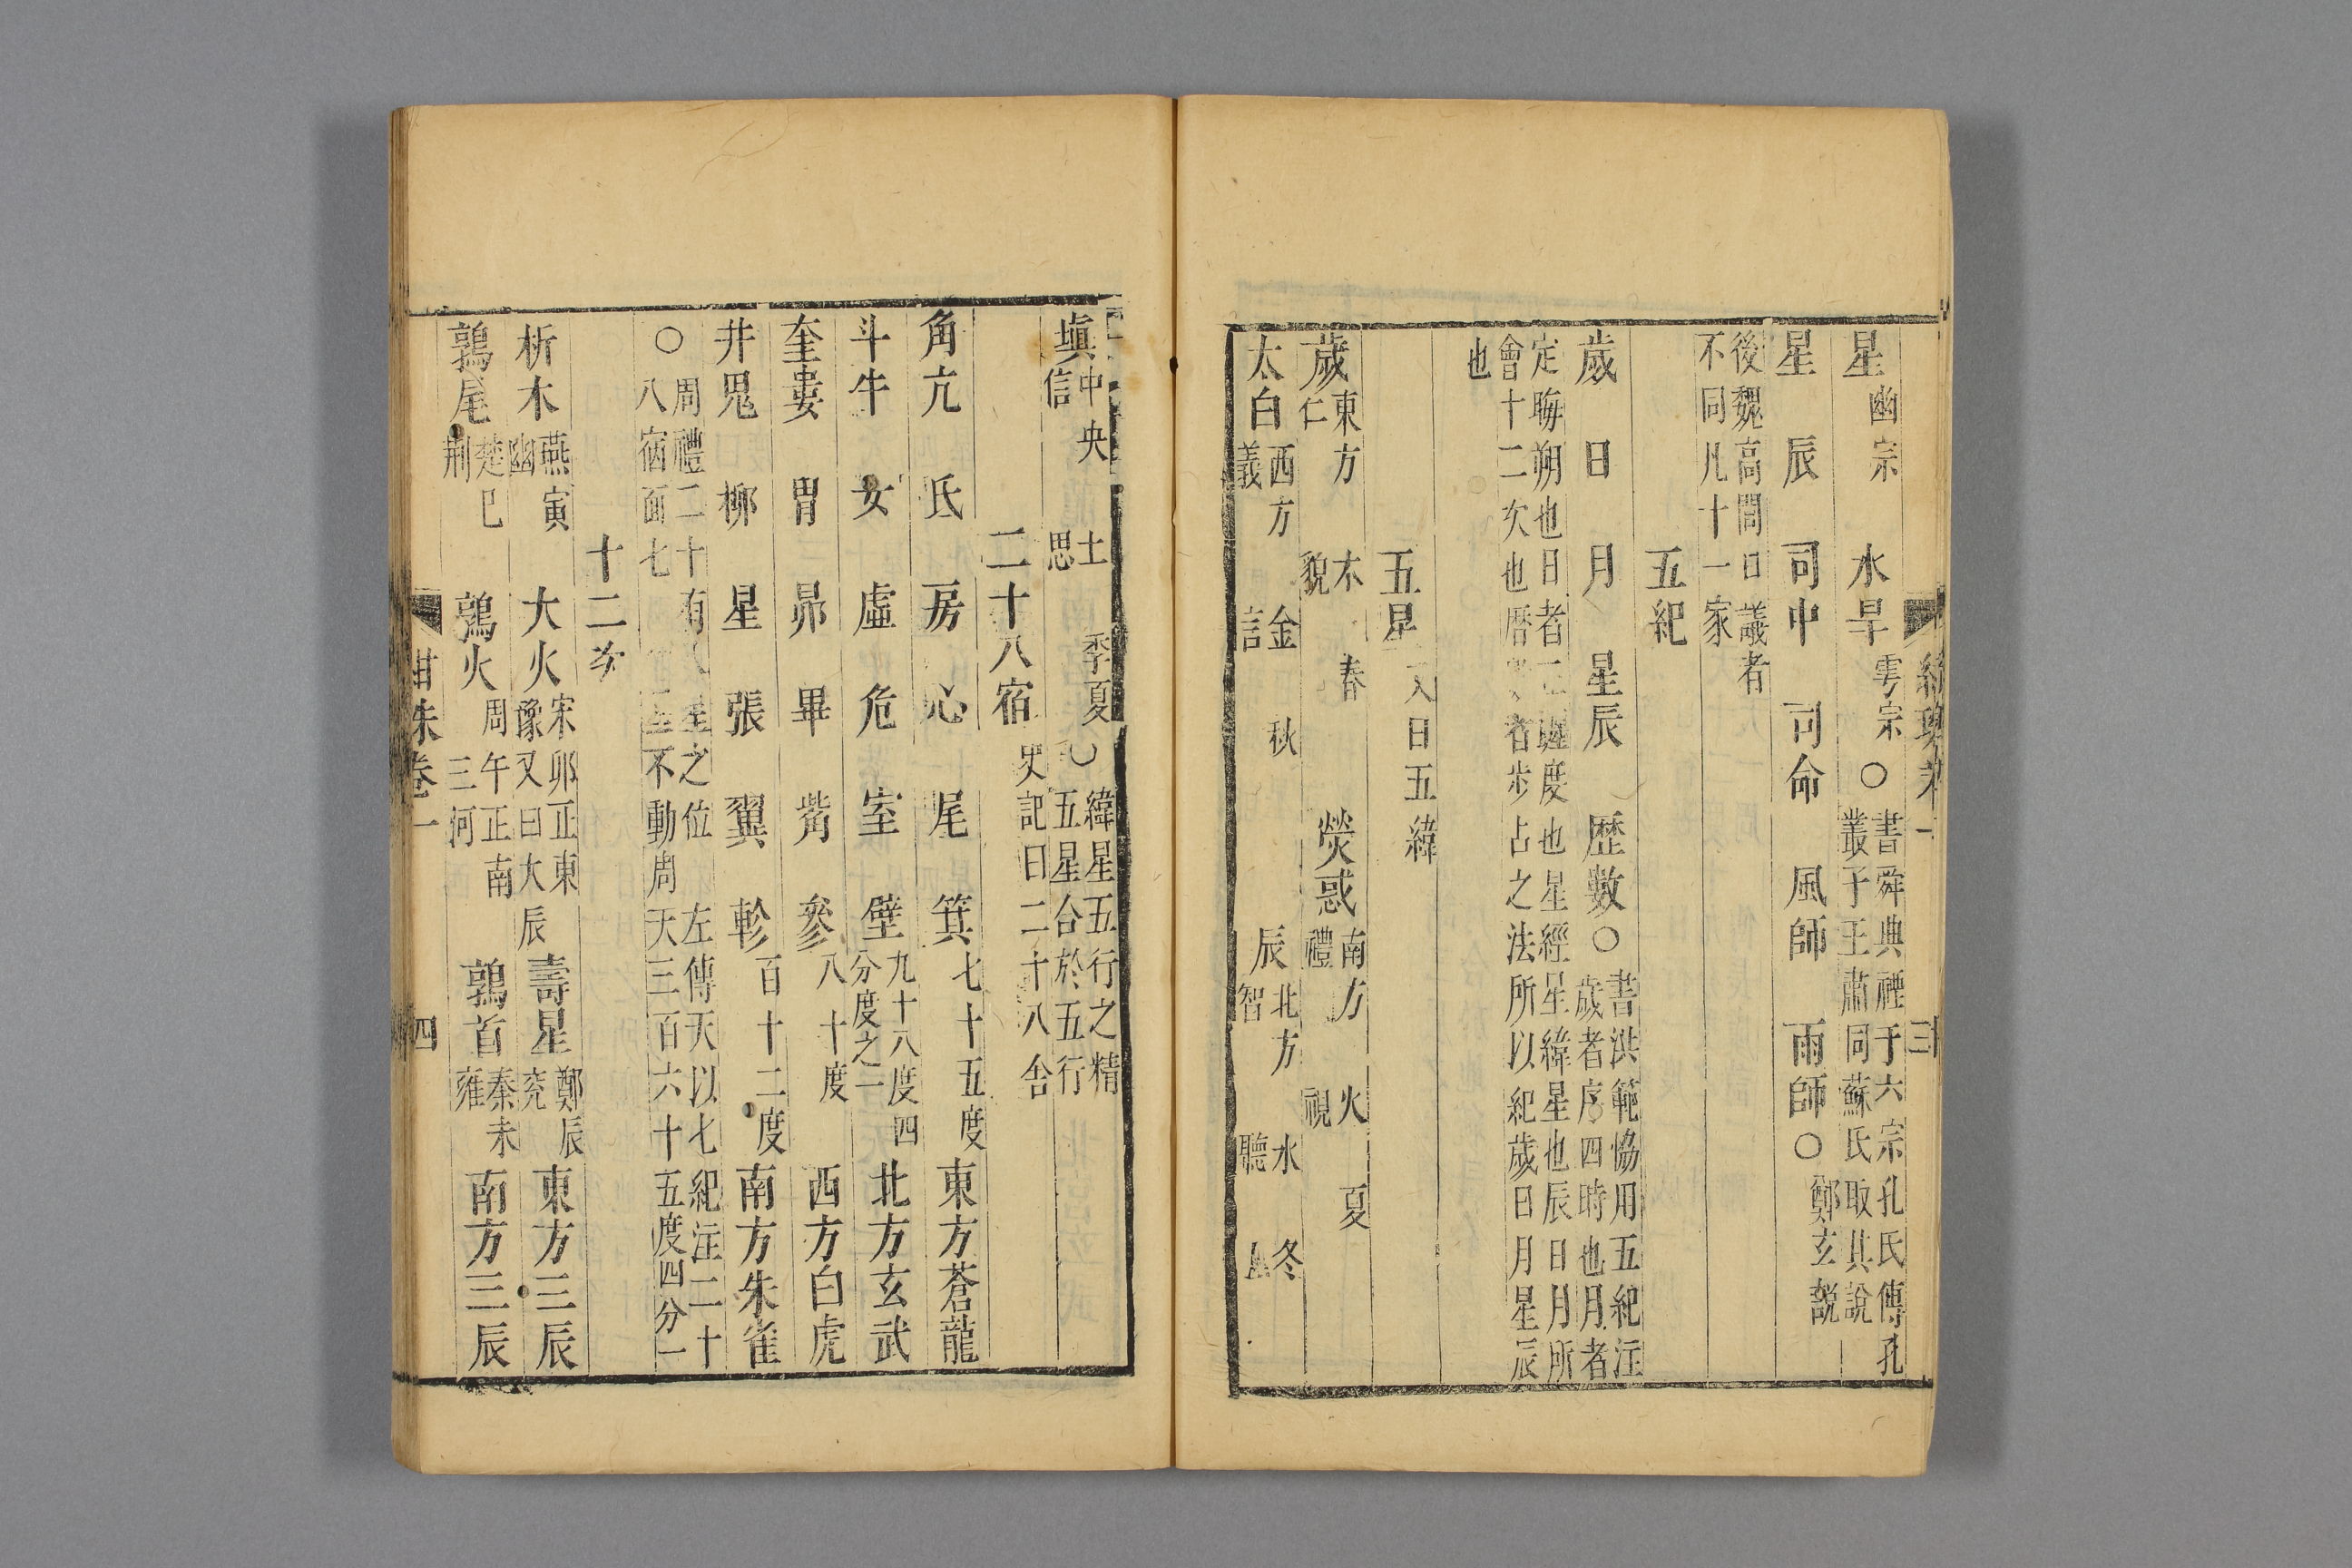 星幽宗 水旱雩宗○書舜典禋于六宗孔氏傳孔
叢子王肅同蘇氏取其說
星 辰 司中 司命 風師 雨師○鄭玄說
後魏高閭曰議者
不同凡十一家
五紀
歲 日 月 星辰 歷數○書洪範恊用五紀注
歲者序四時也月者
定晦朔也日者 度也星經星緯星也辰日月所
會十二次也曆 者步占之法所以紀歲日月星辰
也
五星 又曰五緯
歲東方 木 春 熒惑南方 火 夏
仁 貌 禮 視
太白西方 金 秋 辰北方 水 冬
義 言 智 聽
塡中央 土 季夏○緯星五行之精
信 思 五星合於五行
二十八宿史記曰二十八舍
角亢 氐 房心 尾 箕七十五度東方蒼龍
斗牛 女 虛危 室 壁九十八度四
分度之一北方玄武
奎婁 胃 昴 畢 觜 參八十度西方白虎
井鬼 柳 星 張 翼 軫百十二度南方朱雀
○周禮二十有八星之位 左傳天以七紀注二十
八宿面七 不動周天三百六十五度四分一
十二次
析木燕寅
幽 大火宋卯正東
豫又曰大辰 壽星鄭辰
兖 東方三辰
鶉尾楚巳
荆 鶉火周午正南
三河 鶉首秦未
雍 南方三辰
紺珠卷一 四